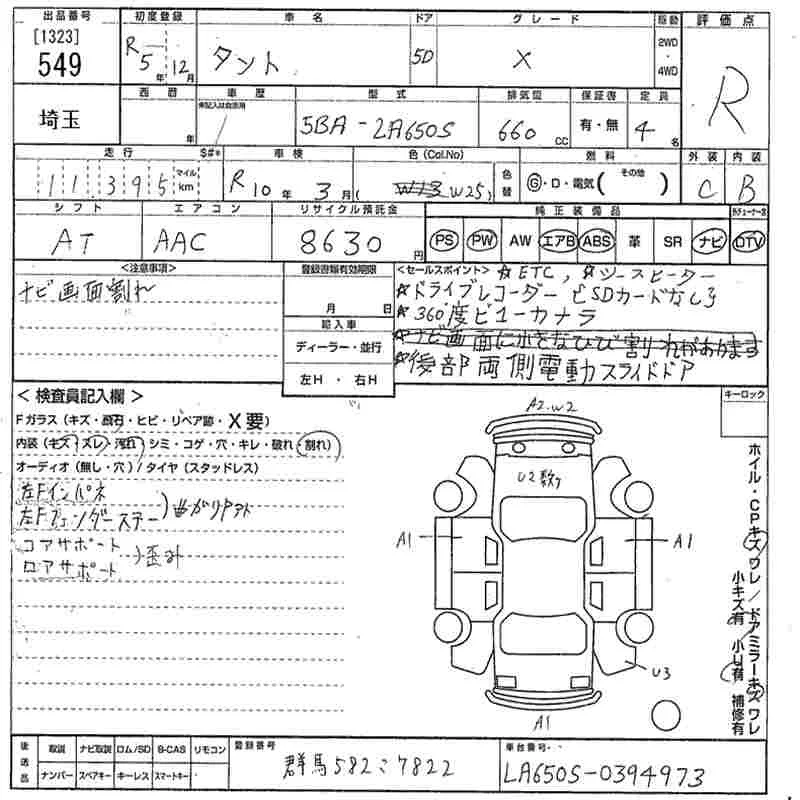 出品番号 初度登録 車名 ドア グレード 駆動 評価点
[1323]
549 R5年12月 タント 5D X 2WD・4WD R
埼玉 西暦 年 車歴 未記入は自家用 型式 5BA-LA650S 排気量 660cc 保証書 有・無 定員 4名
走行 $#* 車検 色(Col.No) 燃料 外装 内装
11,395 マイル km R10年3月 (W13 W25) 色替 G・D・電気(その他) C B
シフト エアコン リサイクル預託金 純正装備品
AT AAC 8630円 PS PW AW エアB ABS 革 SR ナビ DTV
<注意事項> 登録書類有効期限 <セールスポイント> ☆ETC, ☆シートヒーター
ナビ画面割れ 月 日 ☆ドライブレコーダー SDカードなし
輸入車 ☆360度ビューカメラ
ディーラー・並行 ☆ナビ画面に小さなひび割れがあります
左H・右H ☆後部両側電動スライドドア
<検査員記入欄> キーロック
Fガラス(キズ・飛石・ヒビ・リペア跡・X要)
内装(キズ・スレ・汚れ・シミ・コゲ・穴・キレ・破れ・割れ)
オーディオ(無し・穴)/タイヤ(スタッドレス)
左Fインパネ
左Fフェンダーステー )曲がり
コアサポート
ロアサポート )歪み
A2.W2
U2
A1 A1
U3
A1
ホイル・CPキズワレ/ドアミラーキズワレ
小キズ有 小U有 補修有
後送品 取説 ナビ取説 ロム/SD B-CAS リモコン 登録番号 車台番号
ナンバー スペアキー キーレス スマートキー 群馬582こ7822 LA650S-0394973